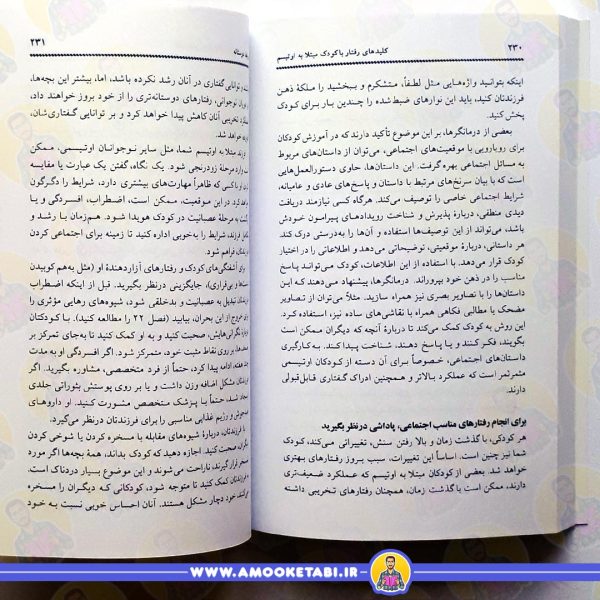 ۲۳۰
کلیدهای رفتار با کودک مبتلا به اوتیسم
اینکه بتوانید واژه‌هایی مثل لطفاً، متشکرم و ببخشید را ملکهٔ ذهن
فرزندتان کنید، باید این نوارهای ضبط‌شده را چندین بار برای کودک
پخش کنید.
بعضی از درمانگرها، بر این موضوع تأکید دارند که در آموزش کودکان
برای رویارویی با موقعیت‌های اجتماعی، می‌توان از داستان‌های مربوط
به مسائل اجتماعی بهره گرفت. این داستان‌ها، حاوی دستورالعمل‌هایی
است که با بیان سرنخ‌های مرتبط با داستان و پاسخ‌های عادی و عامیانه،
شرایط اجتماعی خاصی را توصیف می‌کند. هرگاه کسی نیازمند دریافت
دیدی منطقی، دربارهٔ پذیرش و شناخت رویدادهای پیرامون خودش
باشد، می‌تواند از این توصیف‌ها استفاده و آن‌ها را به‌درستی درک کند.
هر داستانی، دربارهٔ موقعیتی، توضیحاتی می‌دهد و اطلاعاتی را در اختیار
کودک قرار می‌دهد. با استفاده از این اطلاعات، کودک می‌تواند پاسخ
مناسب را در ذهن خود بپروراند. درمانگرها، پیشنهاد می‌دهند که این
داستان‌ها را با تصاویر بصری نیز همراه سازید. مثلاً می‌توان از تصاویر
مضحک یا مطالبی فکاهی همراه با نقاشی‌های ساده نیز، استفاده کرد.
این روش به کودک کمک می‌کند تا دربارهٔ آنچه که دیگران ممکن است
بگویند، فکر کنند و یا پاسخ دهند، شناخت پیدا کند. به‌کارگیری
داستان‌های اجتماعی، خصوصاً برای آن دسته از کودکان اوتیسمی
مثمرثمر است که عملکرد بالاتر و همچنین ادراک گفتاری قابل‌قبولی
دارند.
برای انجام رفتارهای مناسب اجتماعی، پاداشی درنظر بگیرید
هر کودکی، با گذشت زمان و بالا رفتن سنش، تغییراتی می‌کند، کودک
شما نیز چنین است. اساساً این تغییرات، سبب بروز رفتارهای بهتری
خواهد شد. بعضی از کودکان مبتلا به اوتیسم که عملکرد ضعیف‌تری
دارند، ممکن است با گذشت زمان، همچنان رفتارهای تخریبی داشته
۲۳۱
و توانایی گفتاری در آنان رشد نکرده باشد، اما، بیشتر این بچه‌ها،
نوجوانی، رفتارهای دوستانه‌تری را از خود بروز خواهند داد،
تخریبی آنان کاهش پیدا خواهد کرد و بر توانایی گفتاری‌شان،
خواهد شد.
مبتلا به اوتیسم شما، مثل سایر نوجوانان اوتیسمی، ممکن
وارد مرحلهٔ زودرنجی شود. یک نگاه، گفتن یک عبارت یا مقایسه
با کسی که ظاهراً مهارت‌های بیشتری دارد، شرایط را دگرگون
کرد. در این موقعیت، ممکن است، اضطراب، افسردگی و یا
مرحلهٔ عصبانیت در کودک هویدا شود. هم‌زمان با رشد و
فرزند، شرایط را به‌خوبی اداره کنید تا زمینه برای اجتماعی کردن
فراهم شود.
آشفتگی‌های کودک و رفتارهای آزاردهندهٔ او (مثل به‌هم کوبیدن
و بی‌قراری)، جایگزینی درنظر بگیرید. قبل از اینکه اضطراب
تبدیل به عصبانیت و بدخلقی شود، شیوه‌های رهایی مؤثری را
خروج از این بحران، بیابید (فصل ۲۲ را مطالعه کنید). با کودکتان
نگرانی‌هایش، صحبت کنید و به او کمک کنید تا به‌جای تمرکز بر
روی نقاط مثبت خود، متمرکز شود. اگر افسردگی او به مدت
هفته ادامه پیدا کرد، حتماً از فرد متخصصی، مشاوره بگیرید. اگر
مشکل اضافه وزن داشت و یا بر روی پوستش بثوراتی جلدی
حتماً با پزشک متخصص مشورت کنید. او داروهای
و رژیم غذایی مناسبی را برای فرزندتان درنظر می‌گیرد.
با فرزندتان، دربارهٔ شیوه‌های مقابله با مسخره کردن یا شوخی کردن
صحبت کنید. اجازه دهید که کودک بداند، همهٔ بچه‌ها اگر مورد
تمسخر قرار گیرند، ناراحت می‌شوند و این موضوع بسیار دردناک است،
به فرزندتان کمک کنید تا متوجه شود، کودکانی که دیگران را مسخره
می‌کنند، خود دچار مشکل هستند. آنان احساس خوبی نسبت به خود
WWW.AMOOKETABI.IR